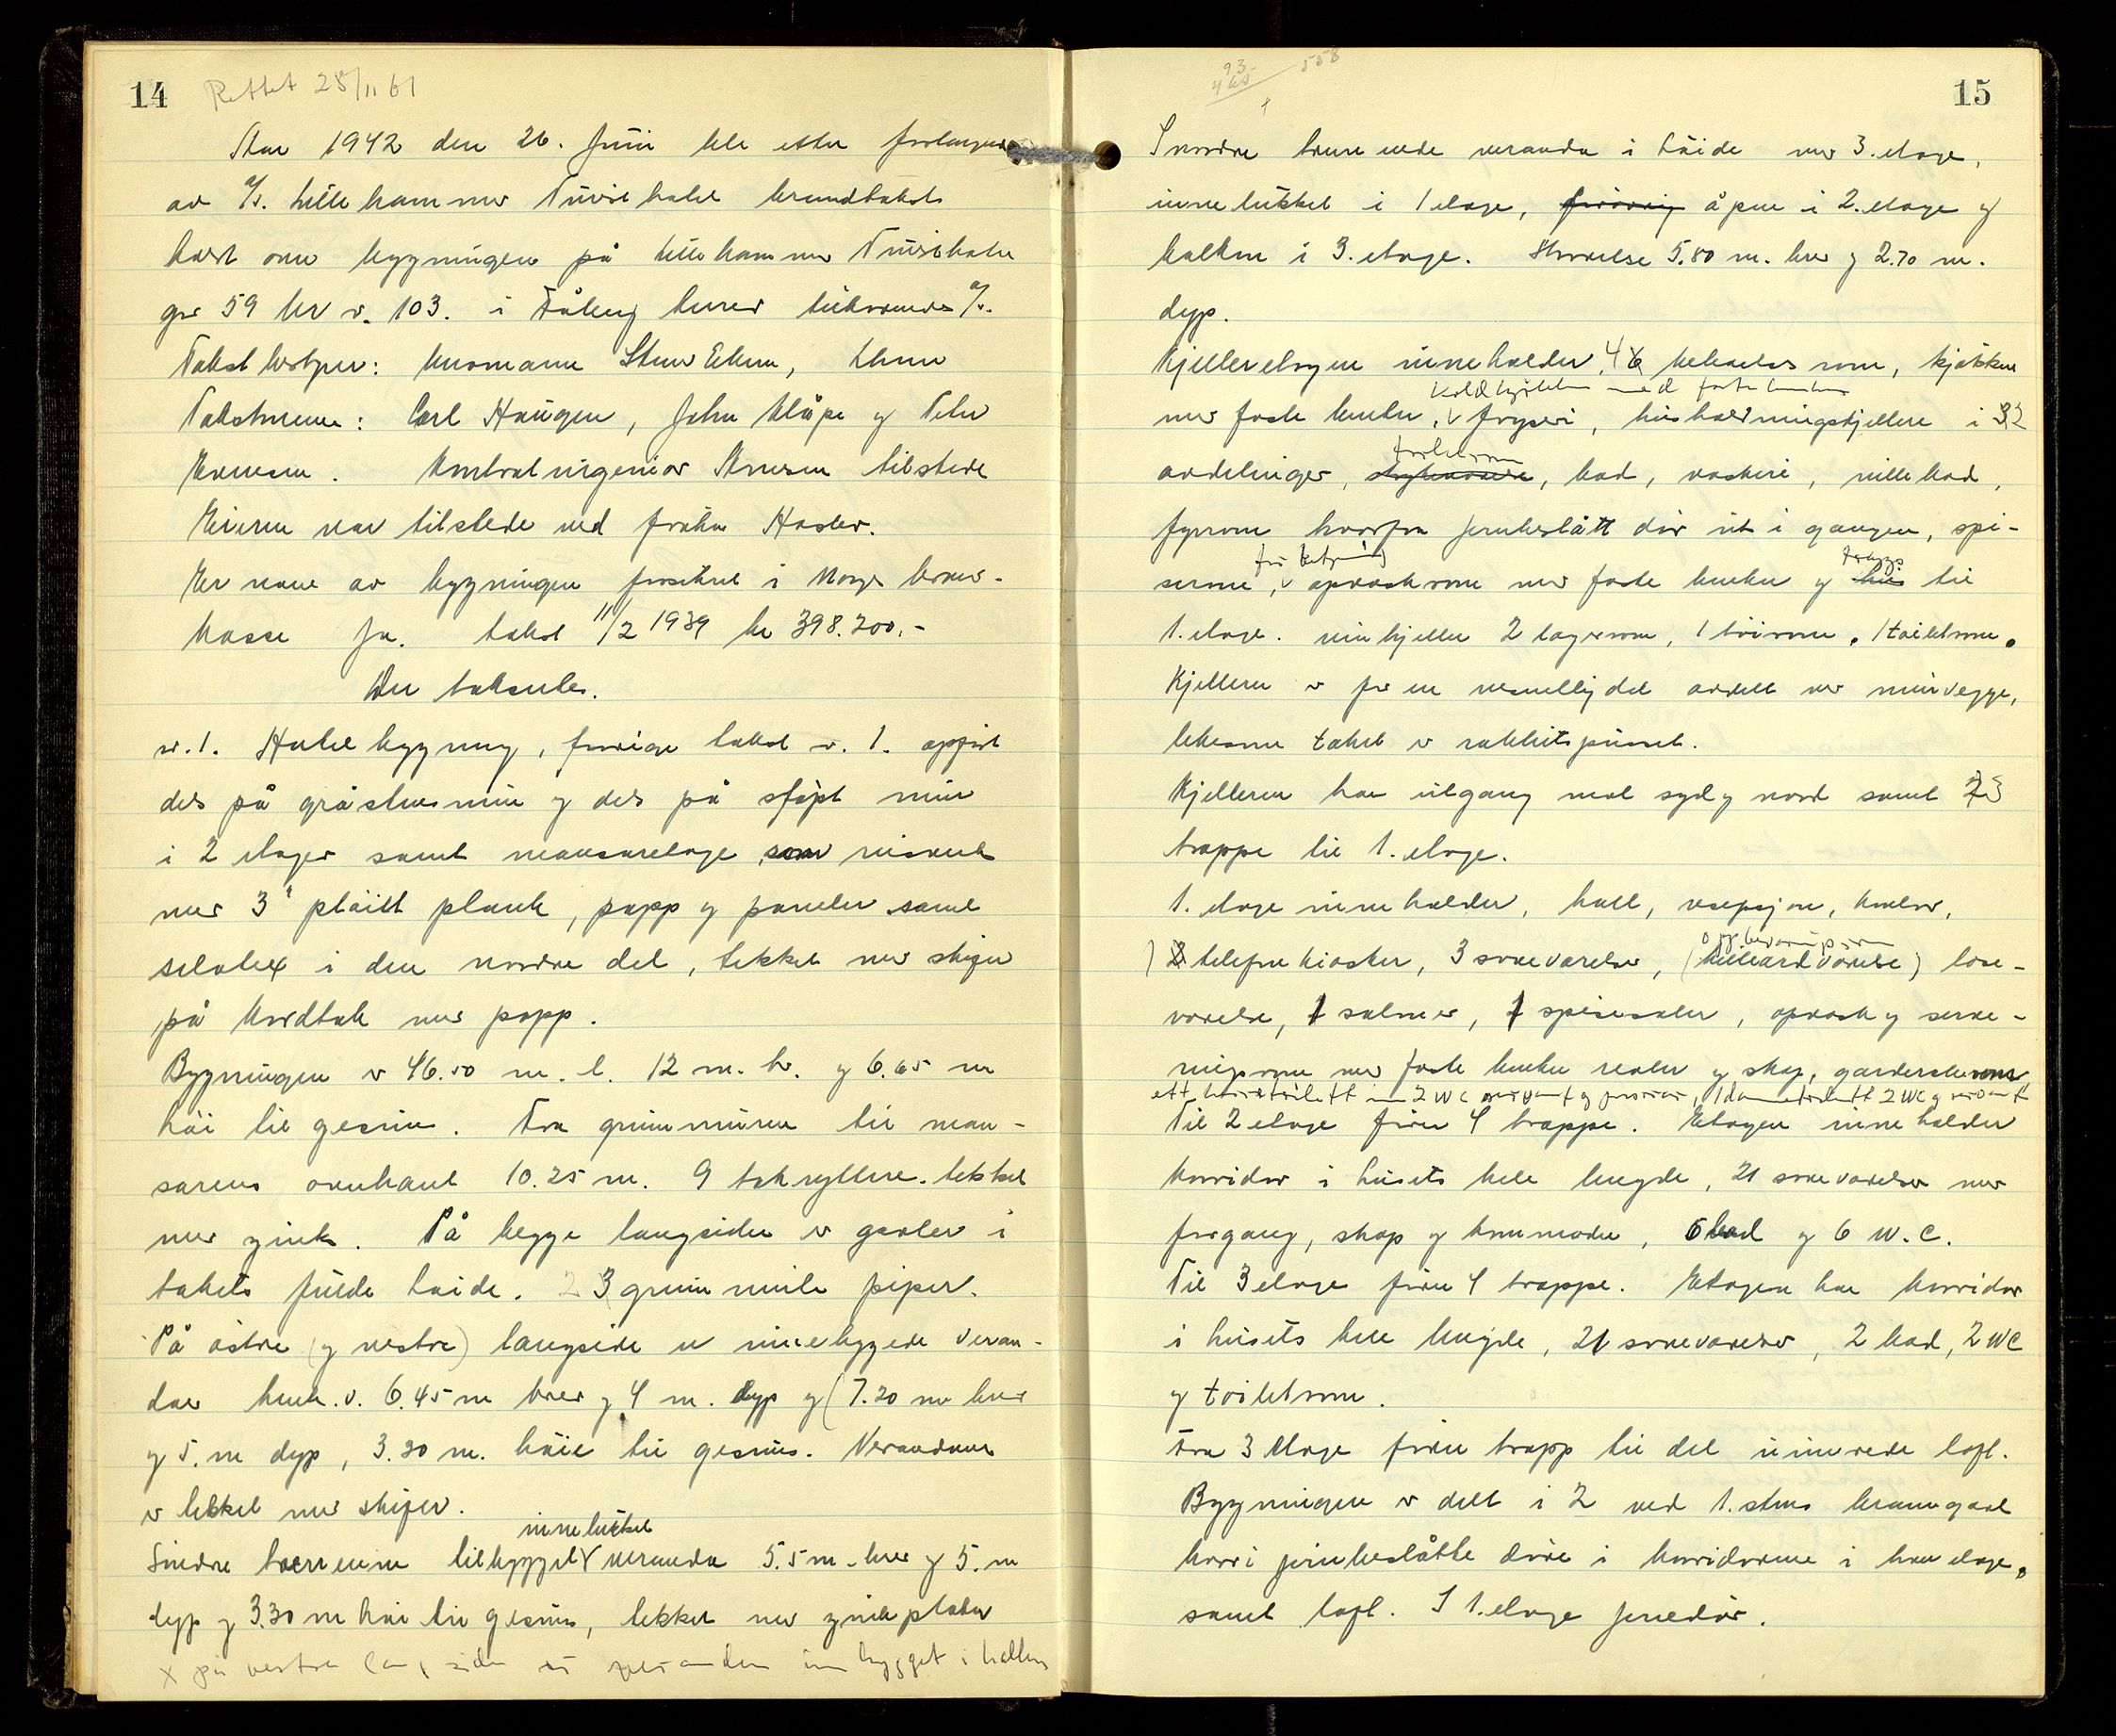 14 Rettet 28/11 61
Åar 1942 den 26. Juni ble etter forlangende
av A/S. Lillehammer Turisthotel brandtakst
holdt over bygningen på Lillehammer Turisthotel
gr 59 br nr. 103. i Fåberg herred tilhørende A/S.
Takstbestyrer:
Takstmenn: Carl Haugen, John Klåpe og Peter
Evensen. Kontrolingeniør tilstede
Eieren var tilstede ved frøken Hasler.
Er noen av bygningen forsikret i Norges brann-
kasse Ja. takst 11/2 1939 kr 398.200.-
Der takseres.
nr. 1. Hotelbygning, forrige takst nr. 1. oppført
dels på gråstensmur og dels på støpt mur
i 2 etager samt mansaretage som reisverk
med 3" pløiet plank, papp og paneler samt
selotex i den nordre del, tekket med skifer
på bordtak med papp.
Bygningen er 46.50 m. l. 12 m. br. og 6.65 m
høi til gesims. Fra grunnmuren til man-
sarens overkant 10.25 m. 9 takryttere tekket
med zink. På begge langsider er gavler i
takets fulde høide. 2 3 grunnmurte piper.
På østre (og vestre) langside er innebyggede veran-
daer henh. v. 6.45 m bred og 4 m. dyp og (7.20 m bred
og 5. m dyp, 3.30 m. høie til gesims. Verandaene
er tekket med skifer.
innelukket
Søndre tverrende tilbygget veranda 5.5 m. bred og 5. m
dyp og 3.30 m høi til gesims, tekket med zinkplater
x på vestre langside er verandaen innbygget i hallen
93 558
15
I nordre tverrende veranda i høide med 3. etage,
innelukket i 1 etage, forøvrig åpen i 2. etage og
balkon i 3. etage. Størrelse 5.80 m. bred og 2.70 m.
dyp.
Kjelleretagen inneholder, 4 beboelses rom, kjøkken
Koldkjøkken med faste benker
med faste benker, fryseri, husholdningskjellere i 32
toiletrom
avdelinger, strykeværelse, bad, vaskeri, rullebod,
fyrrom hvorfra jernbeslått dør ut i gangen, spi-
for betjening trapp
serom, opvaskrom med faste benker og heis til
1. etage. vinkjeller 2 lagerrom, 1 tøirom. 1 toiletrom.
Kjelleren er for en vesentlig del avdelt med murvegge,
likesom taket er rabbitspusset.
Kjelleren har utgang mot syd og nord samt 23
trappe til 1. etage.
1. etage inneholder, hall, resepsjon, kontor,
oppbevaringsrom
2 telefonkiosker, 3 soveværelser, (billiardværelse) lese-
værelse, 1 saloner, 1 spisesaler, opvask og serve-
ringsrom med faste benker reoler og skap, garderoberom
ett herretoilett m 2 WC servant og pissoar, 1 dametoilett 2 WC og servant
Til 2 etage fører 4 trappe. Etagen inneholder
korridor i husets hele lengde, 21 soveværelser med
forgang, skap og kommoder, 6 bad og 6 W.C.
Til 3 etage fører 4 trappe. Etagen har korridor
i husets hele lengde, 21 soveværelser, 2 bad, 2 WC
og toiletrom.
Fra 3 etage fører trapp til det uinnrede loft.
Bygningen er delt i 2 ved 1. stens branngavl
hvori jernbeslåtte døre i korridorene i hver etage,
samt loft. I 1. etage jerndør.